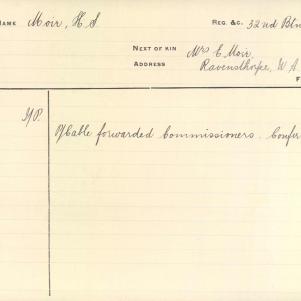 NAME Moir, H S REG. &C. 32nd Bln
NEXT OF KIN Mrs E Moir.
ADDRESS Ravensthorpe, W A
F
Cable forwarded Commissioners. Confir